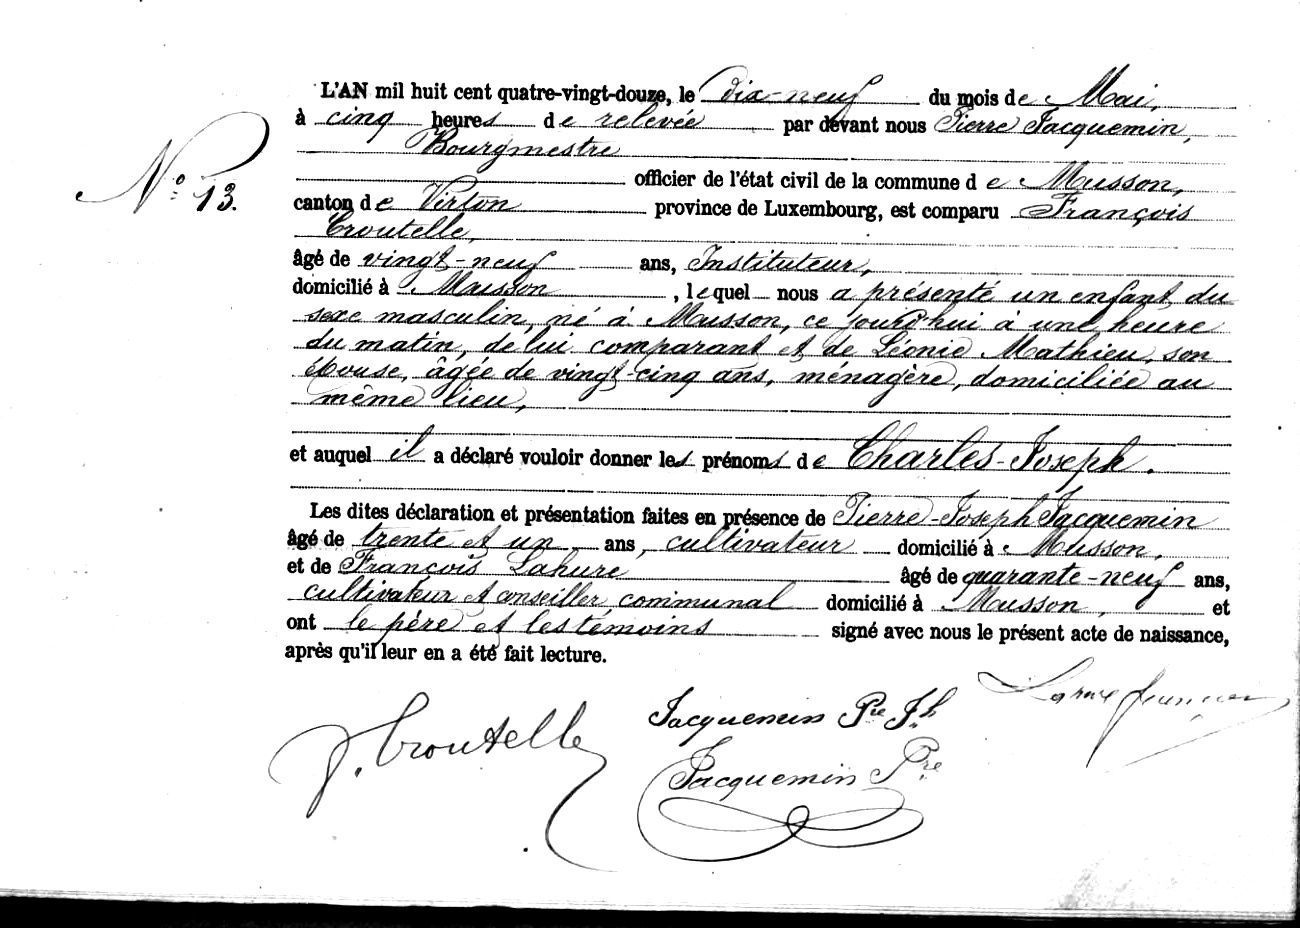 L'AN mil huit cent quatre-vingt-douze, le dix-neuf du mois de Mai,
à cinq heures de relevée par devant nous Pierre Jacquemin,
Bourgmestre
officier de l'état civil de la commune de Musson,
N° 13.
canton de Virton province de Luxembourg, est comparu François
Croutelle,
âgé de vingt-neuf ans, Instituteur,
domicilié à Musson, lequel nous a présenté un enfant du
sexe masculin, né à Musson, ce jourd'hui à une heure
du matin, de lui comparant et de Léonie Mathieu, son
épouse, âgée de vingt-cinq ans, ménagère, domiciliée au
même lieu,
et auquel il a déclaré vouloir donner les prénoms de Charles-Joseph.
Les dites déclaration et présentation faites en présence de Pierre-Joseph Jacquemin
âgé de trente et un ans, cultivateur domicilié à Musson,
et de François Lahure âgé de quarante-neuf ans,
cultivateur et conseiller communal domicilié à Musson, et
ont le père et les témoins signé avec nous le présent acte de naissance,
après qu'il leur en a été fait lecture.
F. Croutelle Jacquemin Pre Jh
Jacquemin Pre